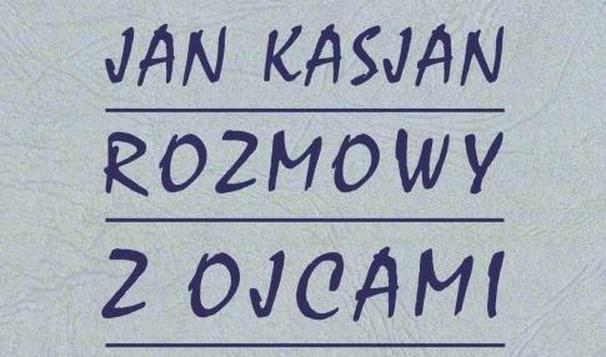 JAN KASJAN
ROZMOWY
Z OJCAMI